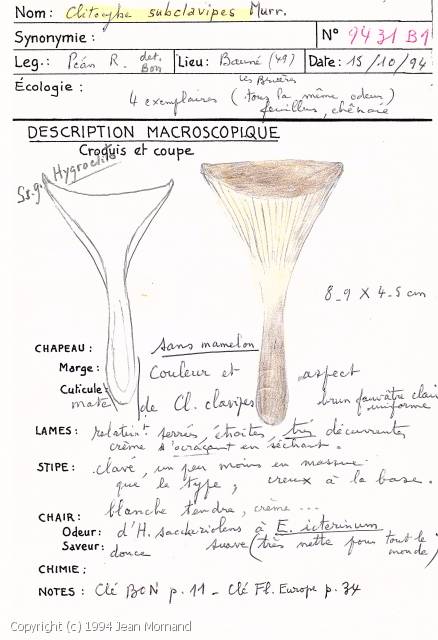 Nom : Clitocybe subclavipes Murr.
Synonymie : N° 9431 B1
Leg. : Péán R. det. Bon Lieu : Bauné (49) Date : 15/10/94
Écologie : Les Bruères
4 exemplaires (tous la même odeur)
feuillus, chênaie
DESCRIPTION MACROSCOPIQUE
Croquis et coupe
Ss.g. Hygroclit
8_9 X 4_5 cm
CHAPEAU : sans mamelon
Marge : Couleur et aspect
Cuticule : mate de Cl. clavipes brun fauvâtre clair uniforme
LAMES : relativt serrées étroites, très décurrentes
crème s'ocraçant en séchant.
STIPE : clavé, un peu moins en massue
que le type, creux à la base.
CHAIR : blanche tendre, crème ...
Odeur : d'H. sacchariolens à E. icterinum
Saveur : douce suave (très nette pour tout le monde)
CHIMIE :
NOTES : Clé BON p. 11 _ Clé Fl. Europe p. 34
Copyright (c) 1994 Jean Mornand